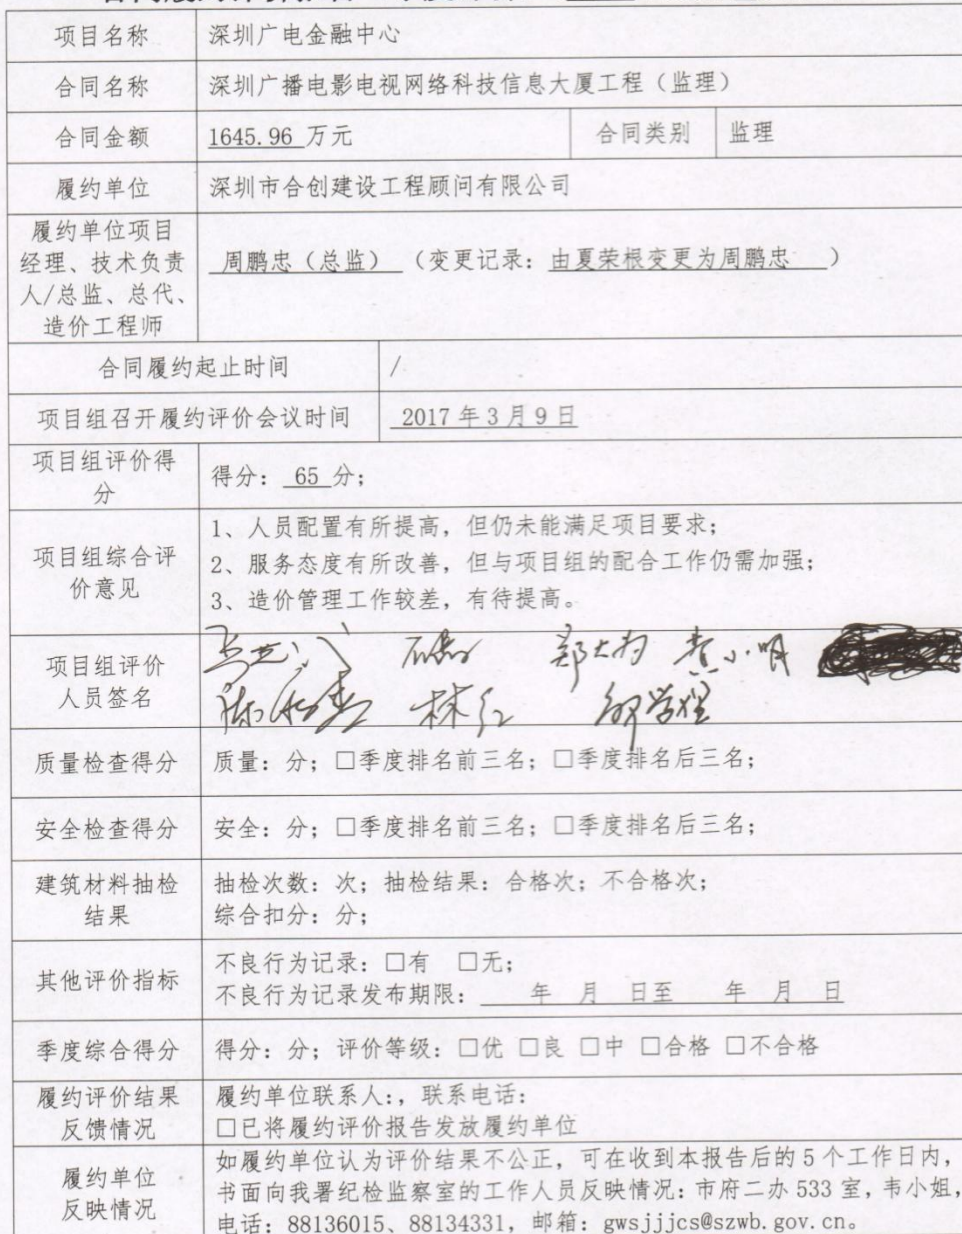 项目名称 深圳广电金融中心
合同名称 深圳广播电影电视网络科技信息大厦工程（监理）
合同金额 1645.96 万元 合同类别 监理
履约单位 深圳市合创建设工程顾问有限公司
履约单位项目
经理、技术负责
人/总监、总代、
造价工程师
周鹏忠（总监） （变更记录：由夏荣根变更为周鹏忠 ）
合同履约起止时间 /
项目组召开履约评价会议时间 2017年3月9日
项目组评价得
分
得分： 65 分；
项目组综合评
价意见
1、人员配置有所提高，但仍未能满足项目要求；
2、服务态度有所改善，但与项目组的配合工作仍需加强；
3、造价管理工作较差，有待提高。
项目组评价
人员签名
郑大为 黄小明
林红
质量检查得分 质量：分；□季度排名前三名；□季度排名后三名；
安全检查得分 安全：分；□季度排名前三名；□季度排名后三名；
建筑材料抽检
结果
抽检次数：次；抽检结果：合格次；不合格次；
综合扣分：分；
其他评价指标
不良行为记录：□有 □无；
不良行为记录发布期限： 年 月 日至 年 月 日
季度综合得分 得分：分；评价等级：□优 □良 □中 □合格 □不合格
履约评价结果
反馈情况
履约单位联系人：，联系电话：
□已将履约评价报告发放履约单位
履约单位
反映情况
如履约单位认为评价结果不公正，可在收到本报告后的5个工作日内，
书面向我署纪检监察室的工作人员反映情况：市府二办533室，韦小姐，
电话：88136015、88134331，邮箱：gwsjjjcs@szwb.gov.cn。